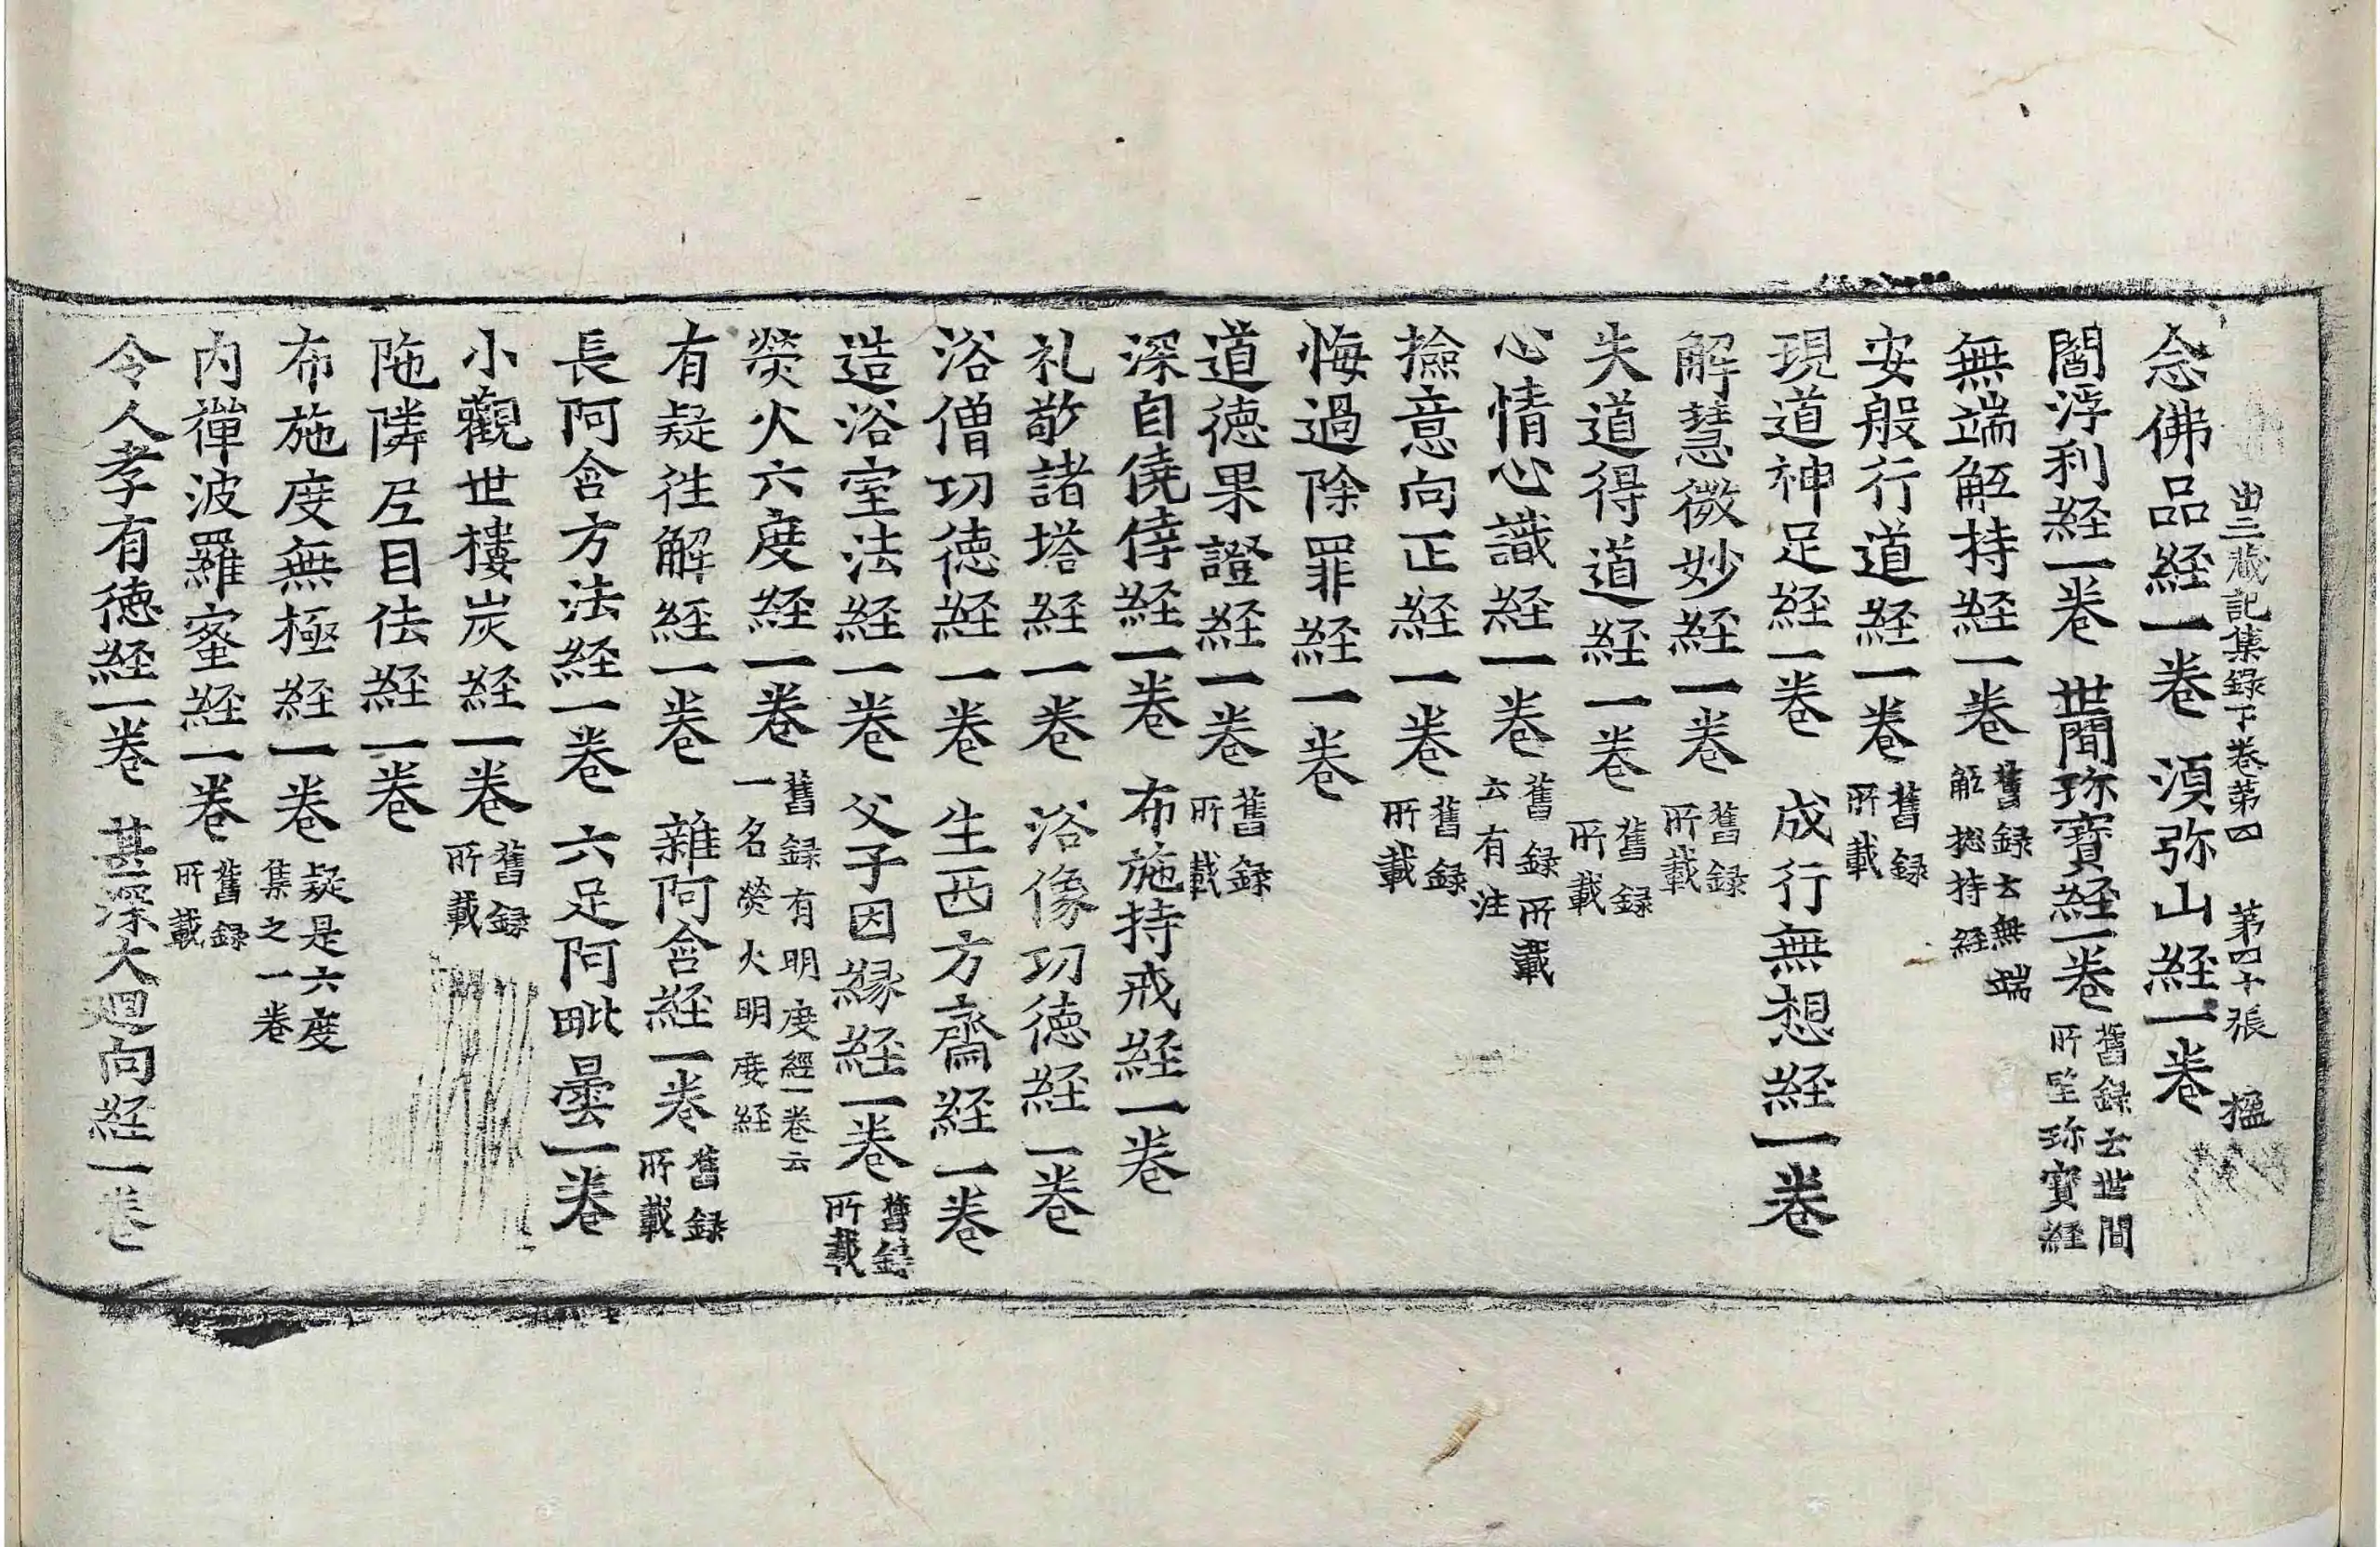 出三蔵記集録下巻第四　第四十張　揾
念佛品経一巻　湏弥山経一巻
閻浮利経一巻　世間珎寶経一巻 舊録云世間所𦊆珎寳経
無端觝持経一巻 舊録云無端觝揔持経
安般行道経一巻 舊録所載
現道神足経一巻　成行無想経一巻
解慧微妙経一巻 舊録所載
失道得道経一巻 舊録所載
心情心識経一巻 舊録所載云有注
撿意向正経一巻 舊録所載
悔過除罪経一巻
道徳果證経一巻 舊録所載
深自僥倖経一巻　布施持戒経一巻
礼敬諸塔経一巻　浴像功徳経一巻
浴僧功徳経一巻　生西方齋経一巻
造浴室法経一巻　父子因縁経一巻 舊録所載
熒火六度経一巻 舊録有明度經一巻云一名熒火明度経
有疑徃解経一巻　雜阿含経一巻 舊録所載
長阿含方法経一巻　六足阿毗曇一巻
小觀世樓炭経一巻 舊録所載
陁隣𡰱目佉経一巻
布施度無極経一巻 疑是六度集之一巻
内禪波羅蜜経一巻 舊録所載
令人孝有徳経一巻　甚深大迴向経一巻